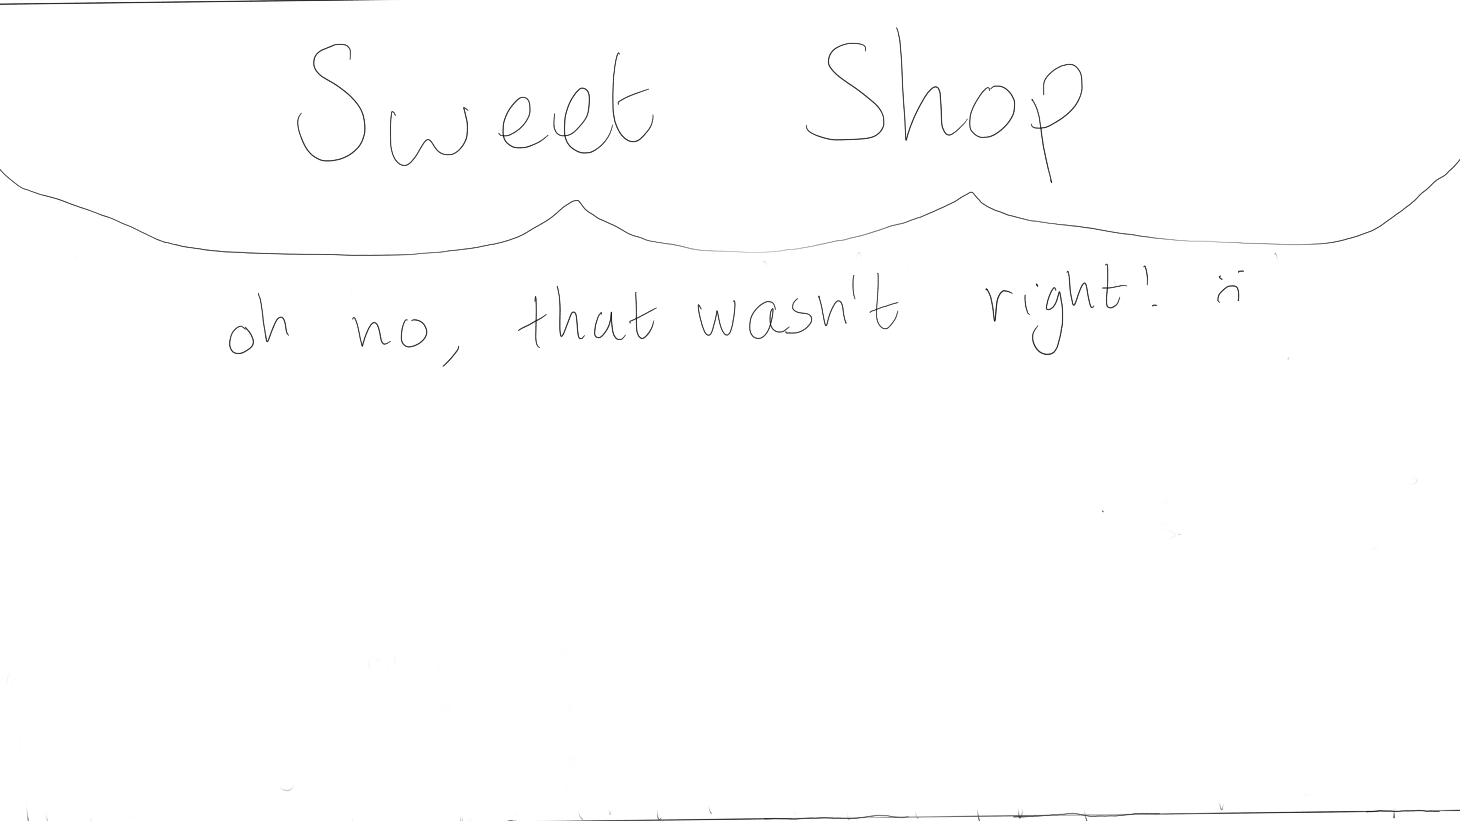 Sweet Shop
oh no, that wasn't right! :(